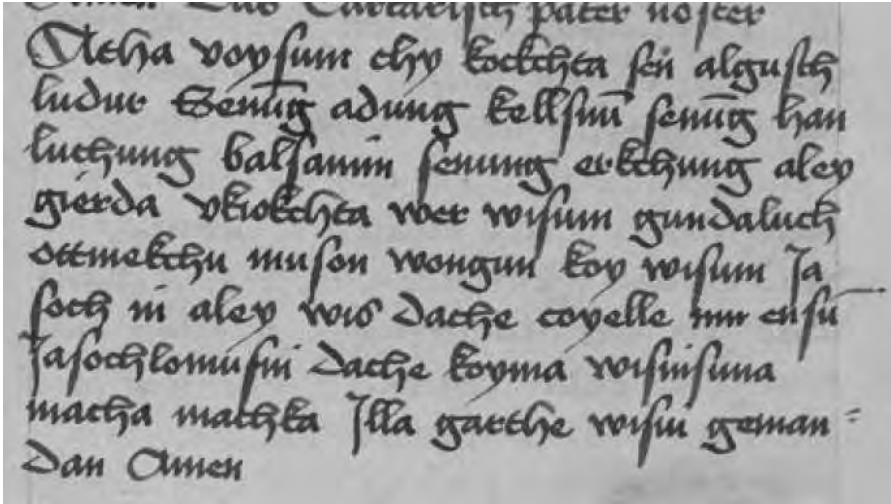 Das Tartarisch pater noster
Atha voysum chy kockchta sen algusch
ludur Senung adung kellsun senung han
luchung balsamin senung erkchung aley
gierda vkiokchta wer wisum gundaluch
ottmekchu muson wongun koy wisum Ja
soch ni aley wis dache coyelle nur ensu
Jasochlomusni dache koyma wisnisuna
macha machka Illa garthe wisni geman
dan Amen